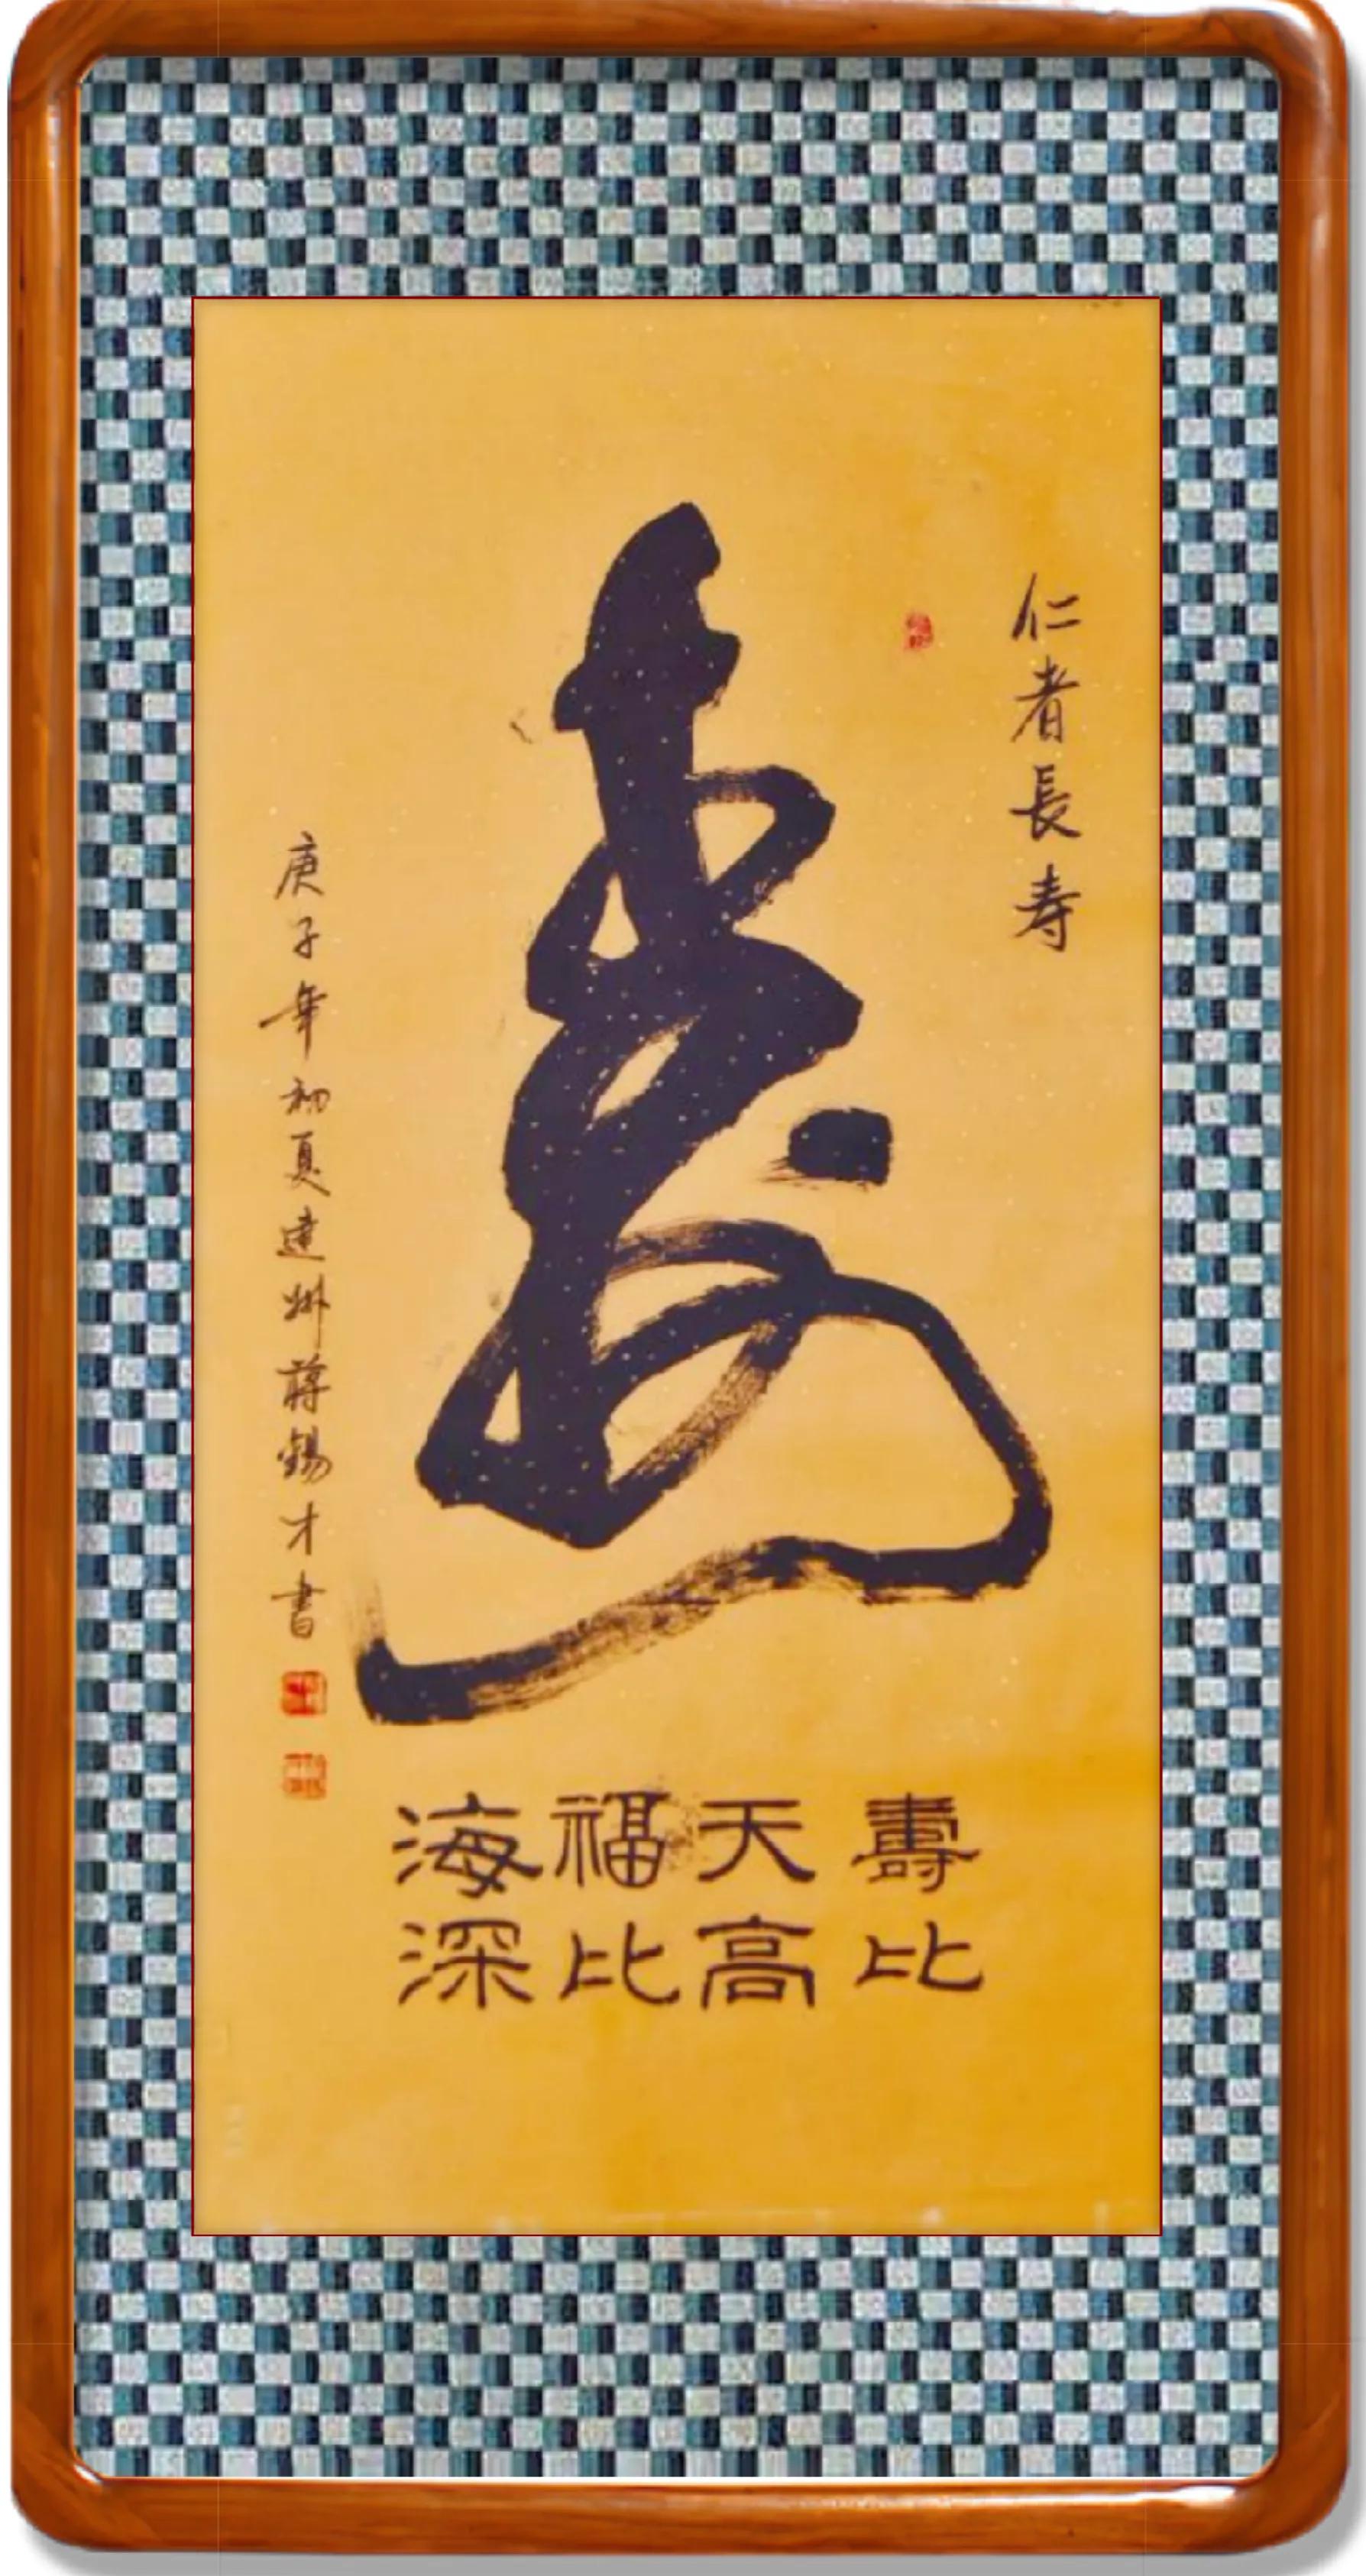 仁者長寿
寿
壽比
天高
福比
海深
庚子年初夏達州蔣錫才書